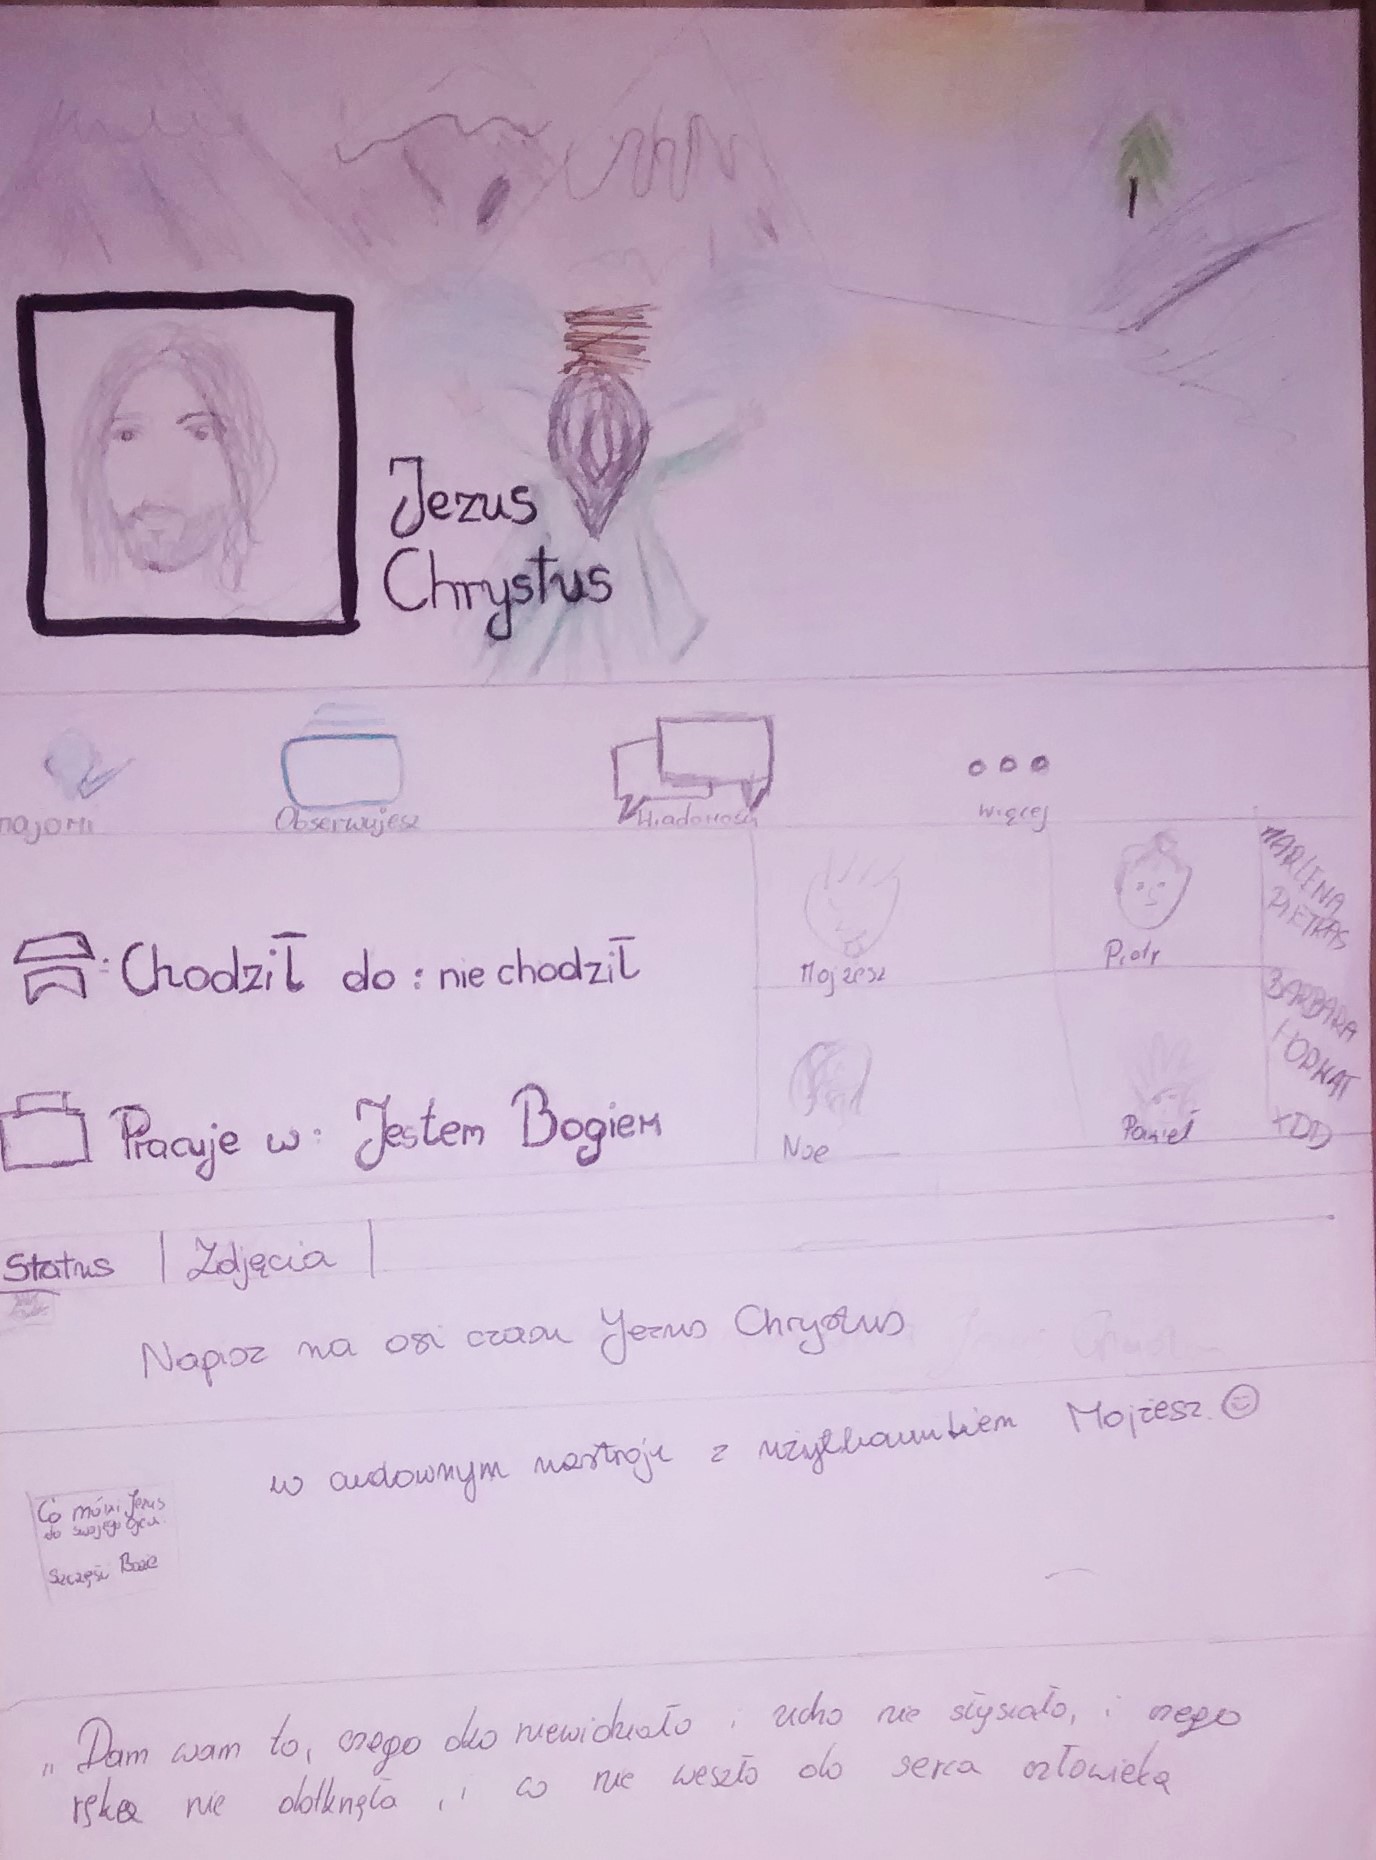 Jezus
Chrystus
najomi
Obserwujesz
Wiadomości
więcej
MARLENA
PIETRAS
Chodził do: nie chodził
Mojżesz
Piotr
BARBARA
XDD
Pracuje w: Jestem Bogiem
Noe
Status | Zdjęcia |
Napisz na osi czasu Jezus Chrystus
w cudownym nastroju z użytkownikiem Mojżesz ☺
Co mówi Jezus
do swojego ojca
Szczęść Boże
„Dam wam to, czego oko niewidziało i ucho nie słyszało, i czego
ręka nie dotknęła, i co nie weszło do serca człowieka